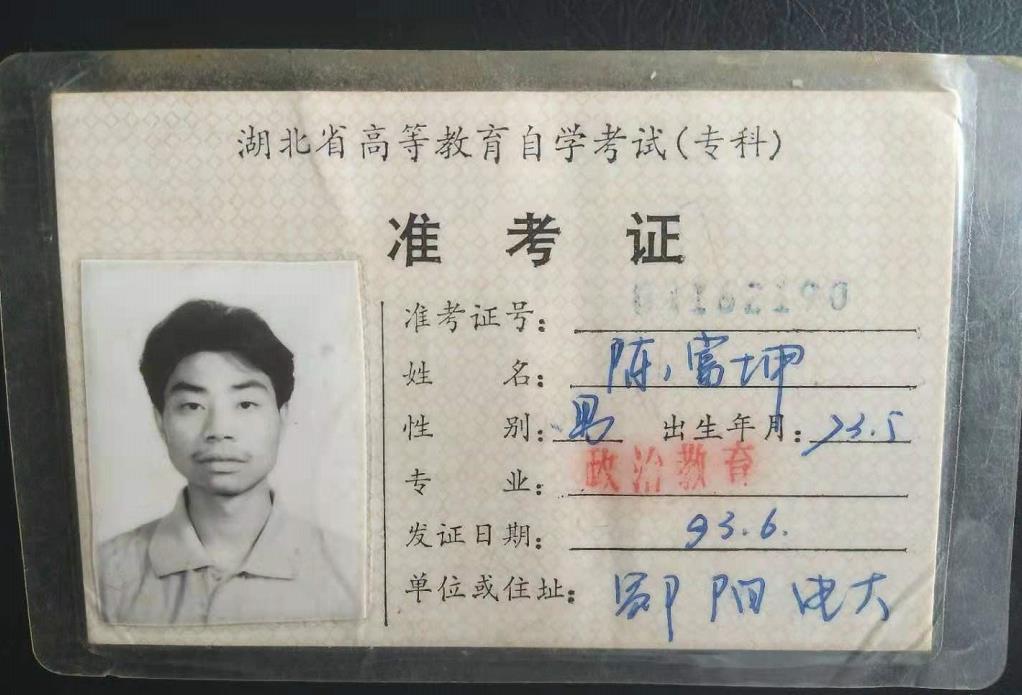 湖北省高等教育自学考试(专科)
准考证
准考证号:
姓名: 陈富坤
性别: 男 出生年月: 73.5
专业: 政治教育
发证日期: 93.6.
单位或住址: 郧阳电大